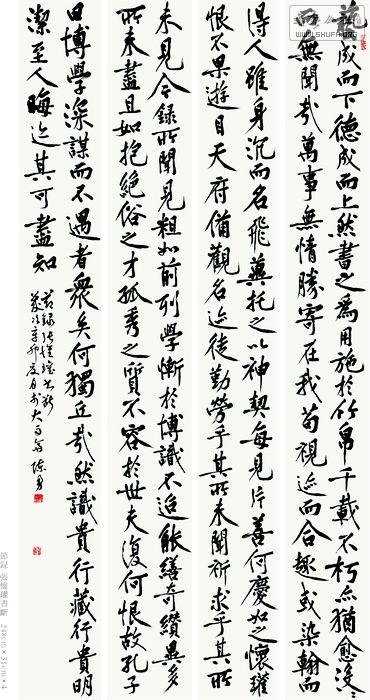 藝成而下德成而上然書之為用施於竹帛千載不朽亦猶愈没〻
而無聞哉萬事無情勝寄在我苟視迹而合趣或染翰而
得人雖身沉而名飛冀托之以神契每見片善何慶如之懷瓘
恨不果遊目天府備觀名迹徒勤勞乎其所未聞祈求乎其所
未見今録所聞見粗如前列學慚於博識不迨能繕奇纘異多
所未盡且如抱絕俗之才孤秀之質不容於世夫復何恨故孔子
曰博學深謀而不遇者衆矣何獨丘哉然識貴行藏行貴明
潔至人晦迹其可盡知
節録張懷瓘書斷
歲次辛卯夏月於大
節録 張懷瓘書斷 248cm×31cm×4
WWW.SHUFA.ORG